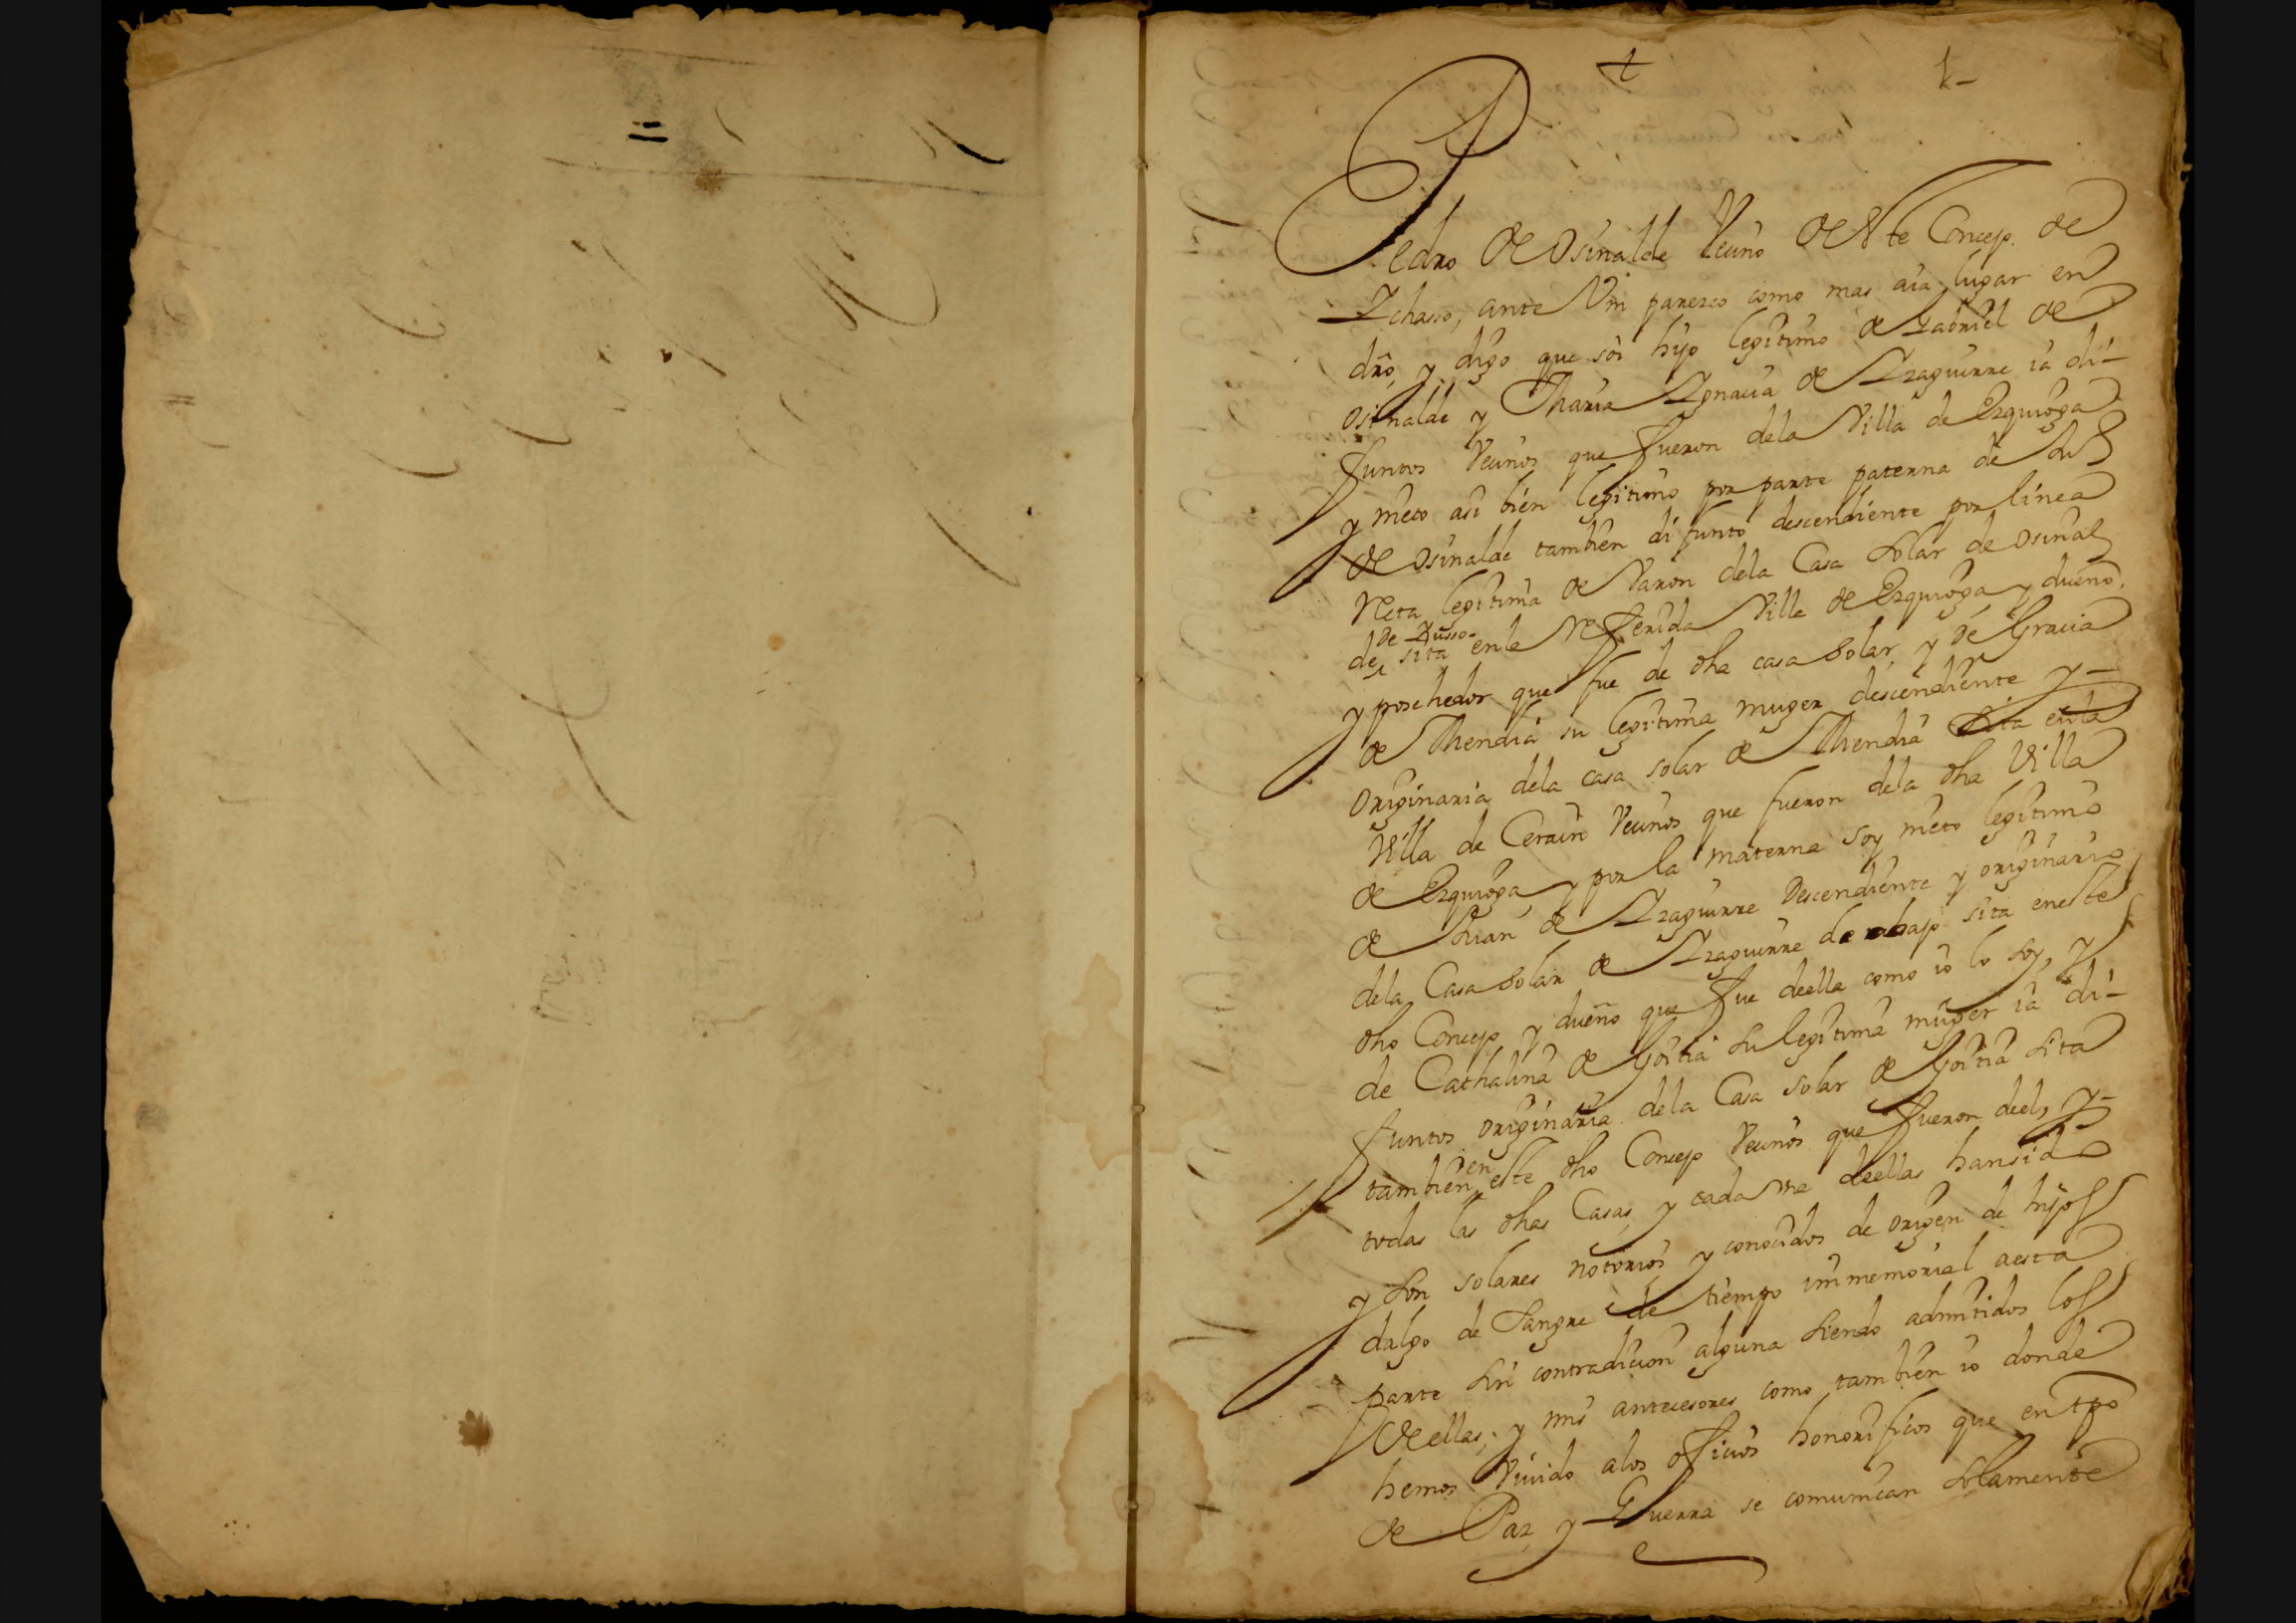 1
Pedro de Osinalde Vecino de este Concejo de
Ichasso, ante Vm parezco como mas aia lugar en
dro, y digo que soi hijo legitimo de Gabriel de
Osinalde y Maria Ignacia de Izaguirre ia di-
funtos Vecinos que fueron dela Villa de Ezquioga
y nieto asi bien legitimo por parte paterna de
de Osinalde tambien difunto descendiente por linea
Recta legitima de Varon dela Casa solar de Osinal
de De Suso sita enla Referida Villa de Ezquioga y dueño,
y posehedor que fue de dha casa solar, y de Gracia
de Mendia su legitima muger descendiente y-
Originaria dela casa solar de Mendia sita enla
Villa de Cerain Vecinos que fueron dela dha Villa
de Ezquioga, y por la materna soy nieto legitimo
de Juan de Izaguirre Descendiente y originario
dela Casa solar de Izaguirre de abajo sita eneste
dho Concejo y dueño que fue deella como io lo soy, y
de Cathalina de Goitia su legitima muger ia di-
funtos originaria dela Casa solar de Goitia sita
tambien en este dho Concejo Vecinos que fueron deel, y-
todas las dhas Casas, y cada vna deellas hansido
y son solares notorios y conocidos de origen de hijos
dalgo de sangre de tiempo immemorial aesta
parte sin contradicion alguna siendo admitidos los
de ellas, y mis antecesores como tambien io donde
hemos Viuido alos officios honorificos que en tpo
de Paz, y Guerra se comunican solamente